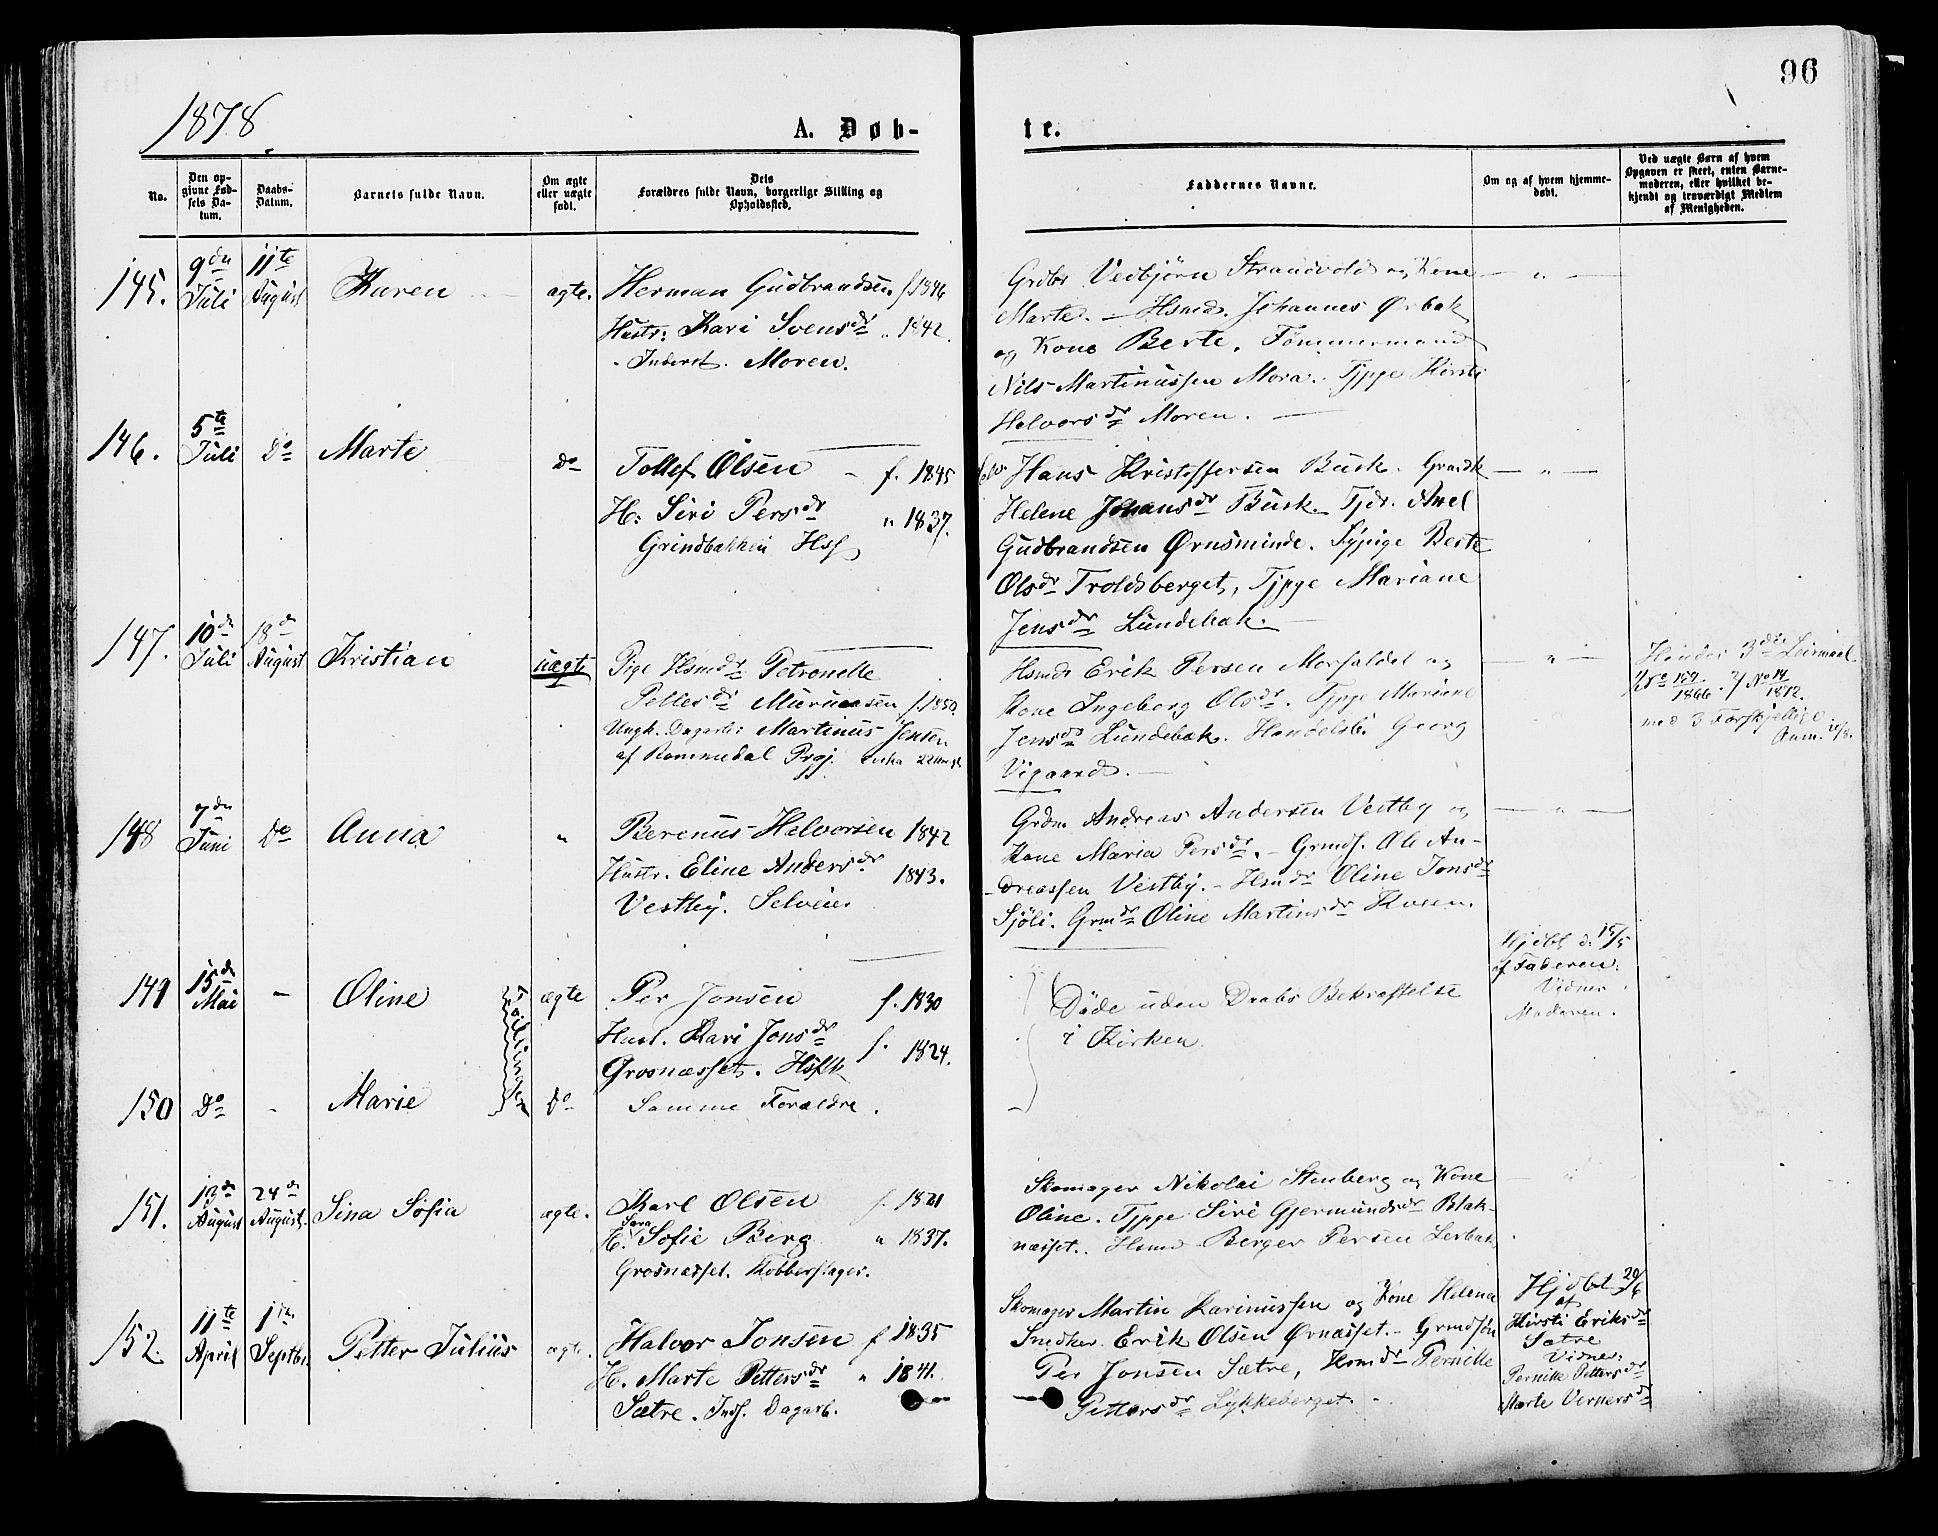 96
1878.
A. Døb-
te.
No.
Den op-
givne Fød-
sels Da-
tum.
Daabs-
Datum.
Barnets fulde Navn.
Om ægte
eller uægte
født.
Dets
Forældres fulde Navn, borgerlige Stilling og
Opholdssted.
Faddernes Navne.
Om og af hvem hjemme-
døbt.
Ved uægte Børn af hvem
Opgaven er skeet, enten Barne-
moderen, eller hvilket be-
kjendt og troværdigt Medlem
af Menigheden.
145.
9de
Juli
11te
August
Karen
ægte.
Herman Gudbrandsen f. 1846
Hustr: Kari Svensdr " 1842.
Inderst. Moren.
Veibjørn Strandvold og Kone
Marte. — Hsmd. Johannes Ørbæk
og Kone Berte. Tømmermand
Nils Martinussen Mora. Tjpge Kirsti
Halvorsdr Moren. —
— " —
146.
5te
Juli
Do
Marte
Do
Tollef Olsen f. 1845
H: Siri Persdr " 1837.
Grindbakken Hsf
Hans Kristoffersen Busk.
Helene Johansdr Busk. Tjdr. Axel
Gudbrandsen Ørnsminde. Tjpige Berte
Olsdr Troldsberget, Tjpge Mariane
Jensdr Lundebæk. —
— " —
147.
10de
Juli
18de
August
Kristian
uægte
Pige Hsmdr Petronelle
Pellesdr f. 1850.
Ungk. Dagarb: Martinus Jensen
af Rommedal Prgj. cirka 22
Hsmd Erik Persen Morfaldet og
Kone Ingeborg Olsdr. Tjpge Mariane
Jensdr Lundebæk. Handelsb. Georg
Vigaard. —
— " —
Hendes 3die Leirmaal
1/ No 157/1866. 2/ No 14/1872.
med 3 Forskjellige
148
7de
Juni
Do
Anna
"
Berenus Halvorsen 1842
Hustr. Eline Andersdr. 1843.
Vestby. Selveier
Grdm Andreas Andersen Vestby og
Kone Maria Persdr. — Grmds. Ole An-
dreassen Vestby. — Hsmdr Oline Jonsdr
Sjøli. Grmdr Oline Martinsdr Rosen.
— " —
149
15de
Mai
-
Oline
Tvillinger
ægte
Per Jonsen f. 1830
Hust. Kari Jonsdr f. 1824.
Grosnæsset. Hsflk
Døde uden Daabs Bekræftelse
i Kirken.
Hjdbt d. 15/5
af Faderen.
Vidner
Moderen.
150
Do
-
Marie
Do
Samme Forældre.
151.
13de
August
24de
August.
Sina Sofia
ægte.
Karl Olsen f. 1821
Sara
H. Sofie Berg " 1837.
Grosnæsset. Kobberslager.
Skomager Nikolai Stenberg og Kone
Oline. Tjpge Siri Gjermundsdr Blak-
næsset. Hsmd Berger Persen Lerbæk.
152.
11te
April
1ste
Septbr.
Petter Julius
ægte.
Halvor Jonsen f 1835
H. Marte Pettersdr " 1841.
Sætre. Inds. Dagarb.
Skomager Martin Karinussen og Kone Helena
Snedker Erik Olsen Ørnæsset. — Grmdsøn
Per Jonsen Sætre, Hsmdr Pernille
Pettersdr Lykkeberget.
Hjdbt 20/6
af
Kirsti Eriksdr
Sætre
Vidner:
Pernille Pettersdr
Marte Vernersdr